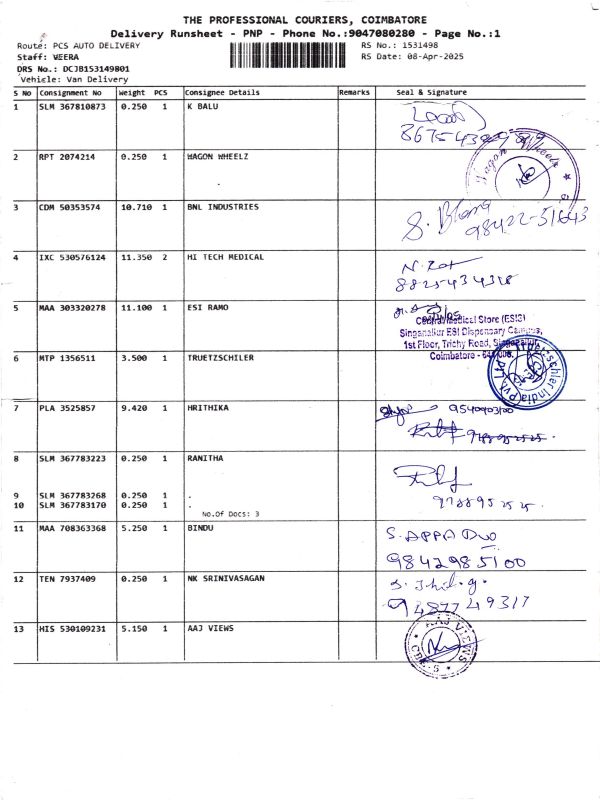 THE PROFESSIONAL COURIERS, COIMBATORE
Delivery Runsheet - PNP - Phone No.:9047080280 - Page No.:1
Route: PCS AUTO DELIVERY RS No.: 1531498
Staff: VEERA RS Date: 08-Apr-2025
DRS No.: DCJB153149801
Vehicle: Van Delivery
S No Consignment No Weight PCS Consignee Details Remarks Seal & Signature
1 SLM 367810873 0.250 1 K BALU
2 RPT 2074214 0.250 1 WAGON WHEELZ
Wagon Wheels
3 CDM 50353574 10.710 1 BNL INDUSTRIES
98422-51643
4 IXC 530576124 11.350 2 HI TECH MEDICAL
5 MAA 303320278 11.100 1 ESI RAMO
Central Medical Store (ESIS)
Singanallur ESI Dispensary Campus,
1st Floor, Trichy Road, Singanallur,
Coimbatore -
6 MTP 1356511 3.500 1 TRUETZSCHILER
7 PLA 3525857 9.420 1 HRITHIKA
8 SLM 367783223 0.250 1 RANITHA
9788952525.
9 SLM 367783268 0.250 1 .
10 SLM 367783170 0.250 1 .
No.Of Docs: 3
11 MAA 708363368 5.250 1 BINDU
9842985100
12 TEN 7937409 0.250 1 NK SRINIVASAGAN
9487749317
13 HIS 530109231 5.150 1 AAJ VIEWS
AAJ VIEWS